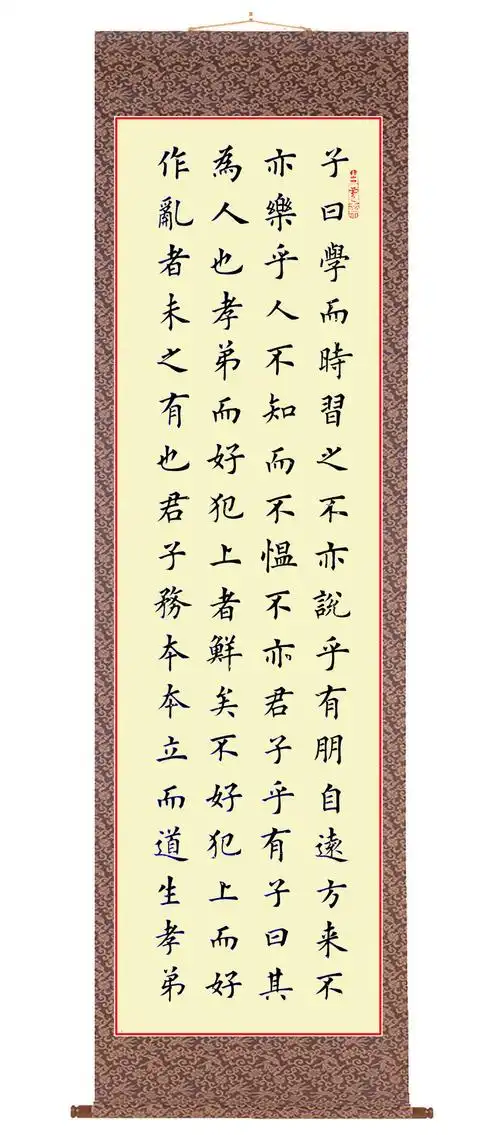 子曰學而時習之不亦說乎有朋自遠方来不
亦樂乎人不知而不愠不亦君子乎有子曰其
為人也孝弟而好犯上者鮮矣不好犯上而好
作亂者未之有也君子務本本立而道生孝弟